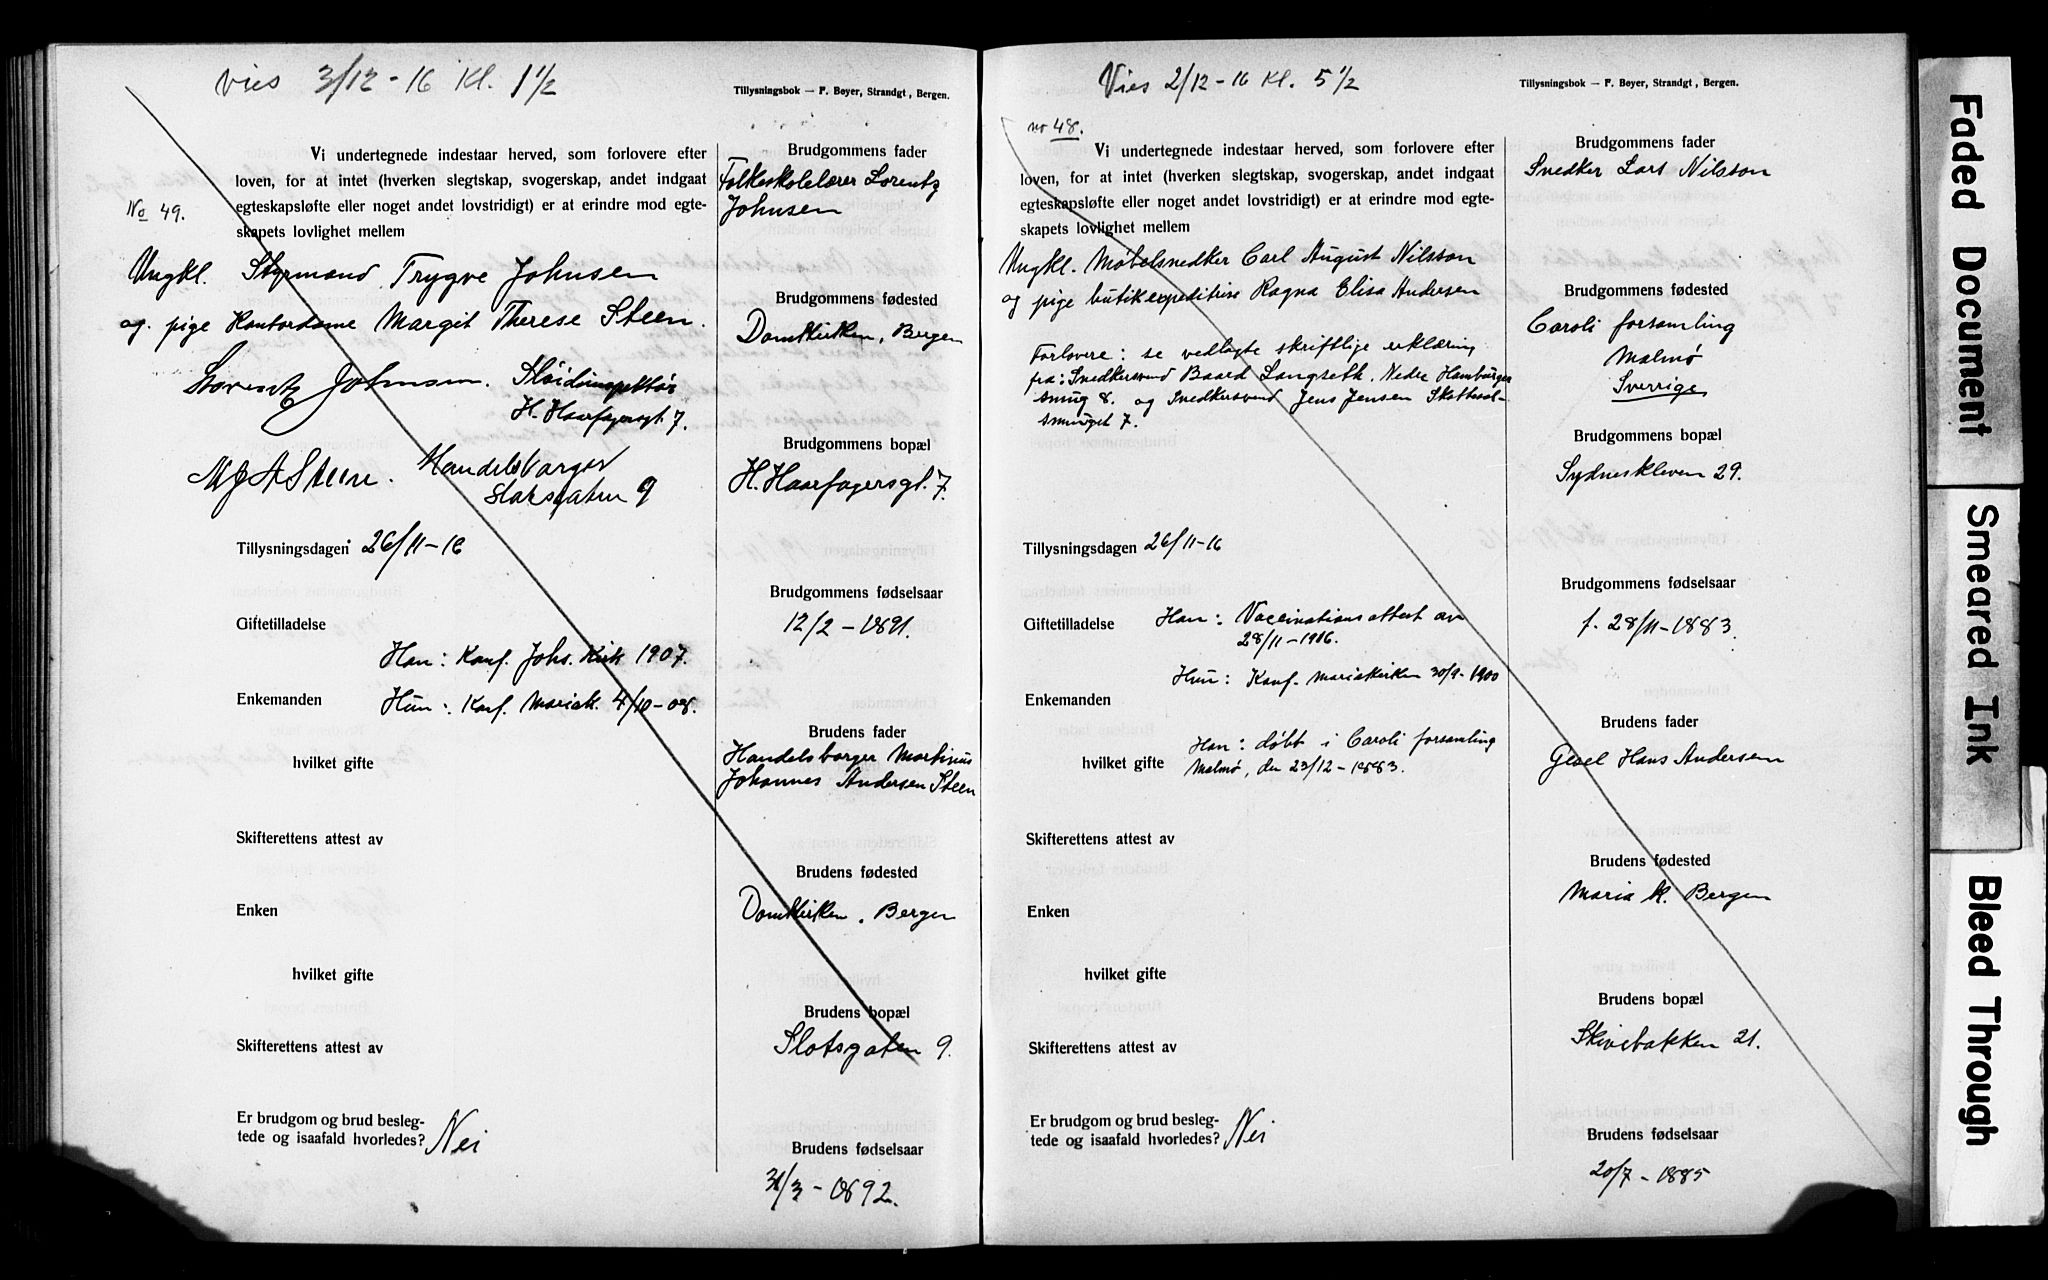 Vies 3/12-16 Kl. 1 1/2
Tillysningsbok — F. Beyer, Strandgt, Bergen.
No 49.
Vi undertegnede indestaar herved, som forlovere efter
loven, for at intet (hverken slegtskap, svogerskap, andet indgaat
egteskapsløfte eller noget andet lovstridigt) er at erindre mod egte-
skapets lovlighet mellem
Ungkl. Styrmand Trygve Johnsen
og pige Kontordame Margit Therese Steen.
Lorentz Johnsen. Sløidinspektør
H. Haarfagersgt. 7.
M J A Steen. Handelsborger
Slotsgaten 9
Tillysningsdagen 26/11-16
Giftetilladelse
Han: Konf. Johs. Kirk 1907.
Enkemanden
Hun: Konf. Mariak. 4/10-08.
hvilket gifte
Skifterettens attest av
Enken
hvilket gifte
Skifterettens attest av
Er brudgom og brud besleg-
tede og isaafald hvorledes? Nei
Brudgommens fader
Folkeskolelærer Lorentz
Johnsen
Brudgommens fødested
Domkirken, Bergen
Brudgommens bopæl
H. Haarfagersgt. 7.
Brudgommens fødselsaar
12/2-1891.
Brudens fader
Handelsborger Martinius
Johannes Andersen Steen
Brudens fødested
Domkirken, Bergen
Brudens bopæl
Slotsgaten 9.
Brudens fødselsaar
31/3-1892.
Vies 2/12-16 Kl. 5 1/2
Tillysningsbok — F. Beyer, Strandgt, Bergen.
no 48.
Vi undertegnede indestaar herved, som forlovere efter
loven, for at intet (hverken slegtskap, svogerskap, andet indgaat
egteskapsløfte eller noget andet lovstridigt) er at erindre mod egte-
skapets lovlighet mellem
Ungkl. Møbelsnedker Carl August Nilsson
og pige butikexpeditrise Ragna Elisa Andersen
Forlovere: se vedlagte skriftlige erklæring
fra: Snedkersvend Baard Langseth, Nedre Hamburger
smug 8. og Snedkersvend Jens Jensen Skottesal-
smuget 7.
Tillysningsdagen 26/11-16
Giftetilladelse
Han: Vaccinationsattest av
28/11-1916.
Hun: Konf. Mariakirken 30/9-1900
Enkemanden
Han: døbt i Caroli forsamling
hvilket gifte Malmø, den 23/12-1883.
Skifterettens attest av
Enken
hvilket gifte
Skifterettens attest av
Er brudgom og brud besleg-
tede og isaafald hvorledes? Nei
Brudgommens fader
Snedker Lars Nilsson
Brudgommens fødested
Caroli forsamling
Malmø
Sverrige
Brudgommens bopæl
Sydneskleven 29.
Brudgommens fødselsaar
f. 28/11-1883.
Brudens fader
Hans Andersen
Brudens fødested
Maria k. Bergen
Brudens bopæl
Skivebakken 21.
Brudens fødselsaar
20/7-1885
Faded Document
Smeared Ink
Bleed Through